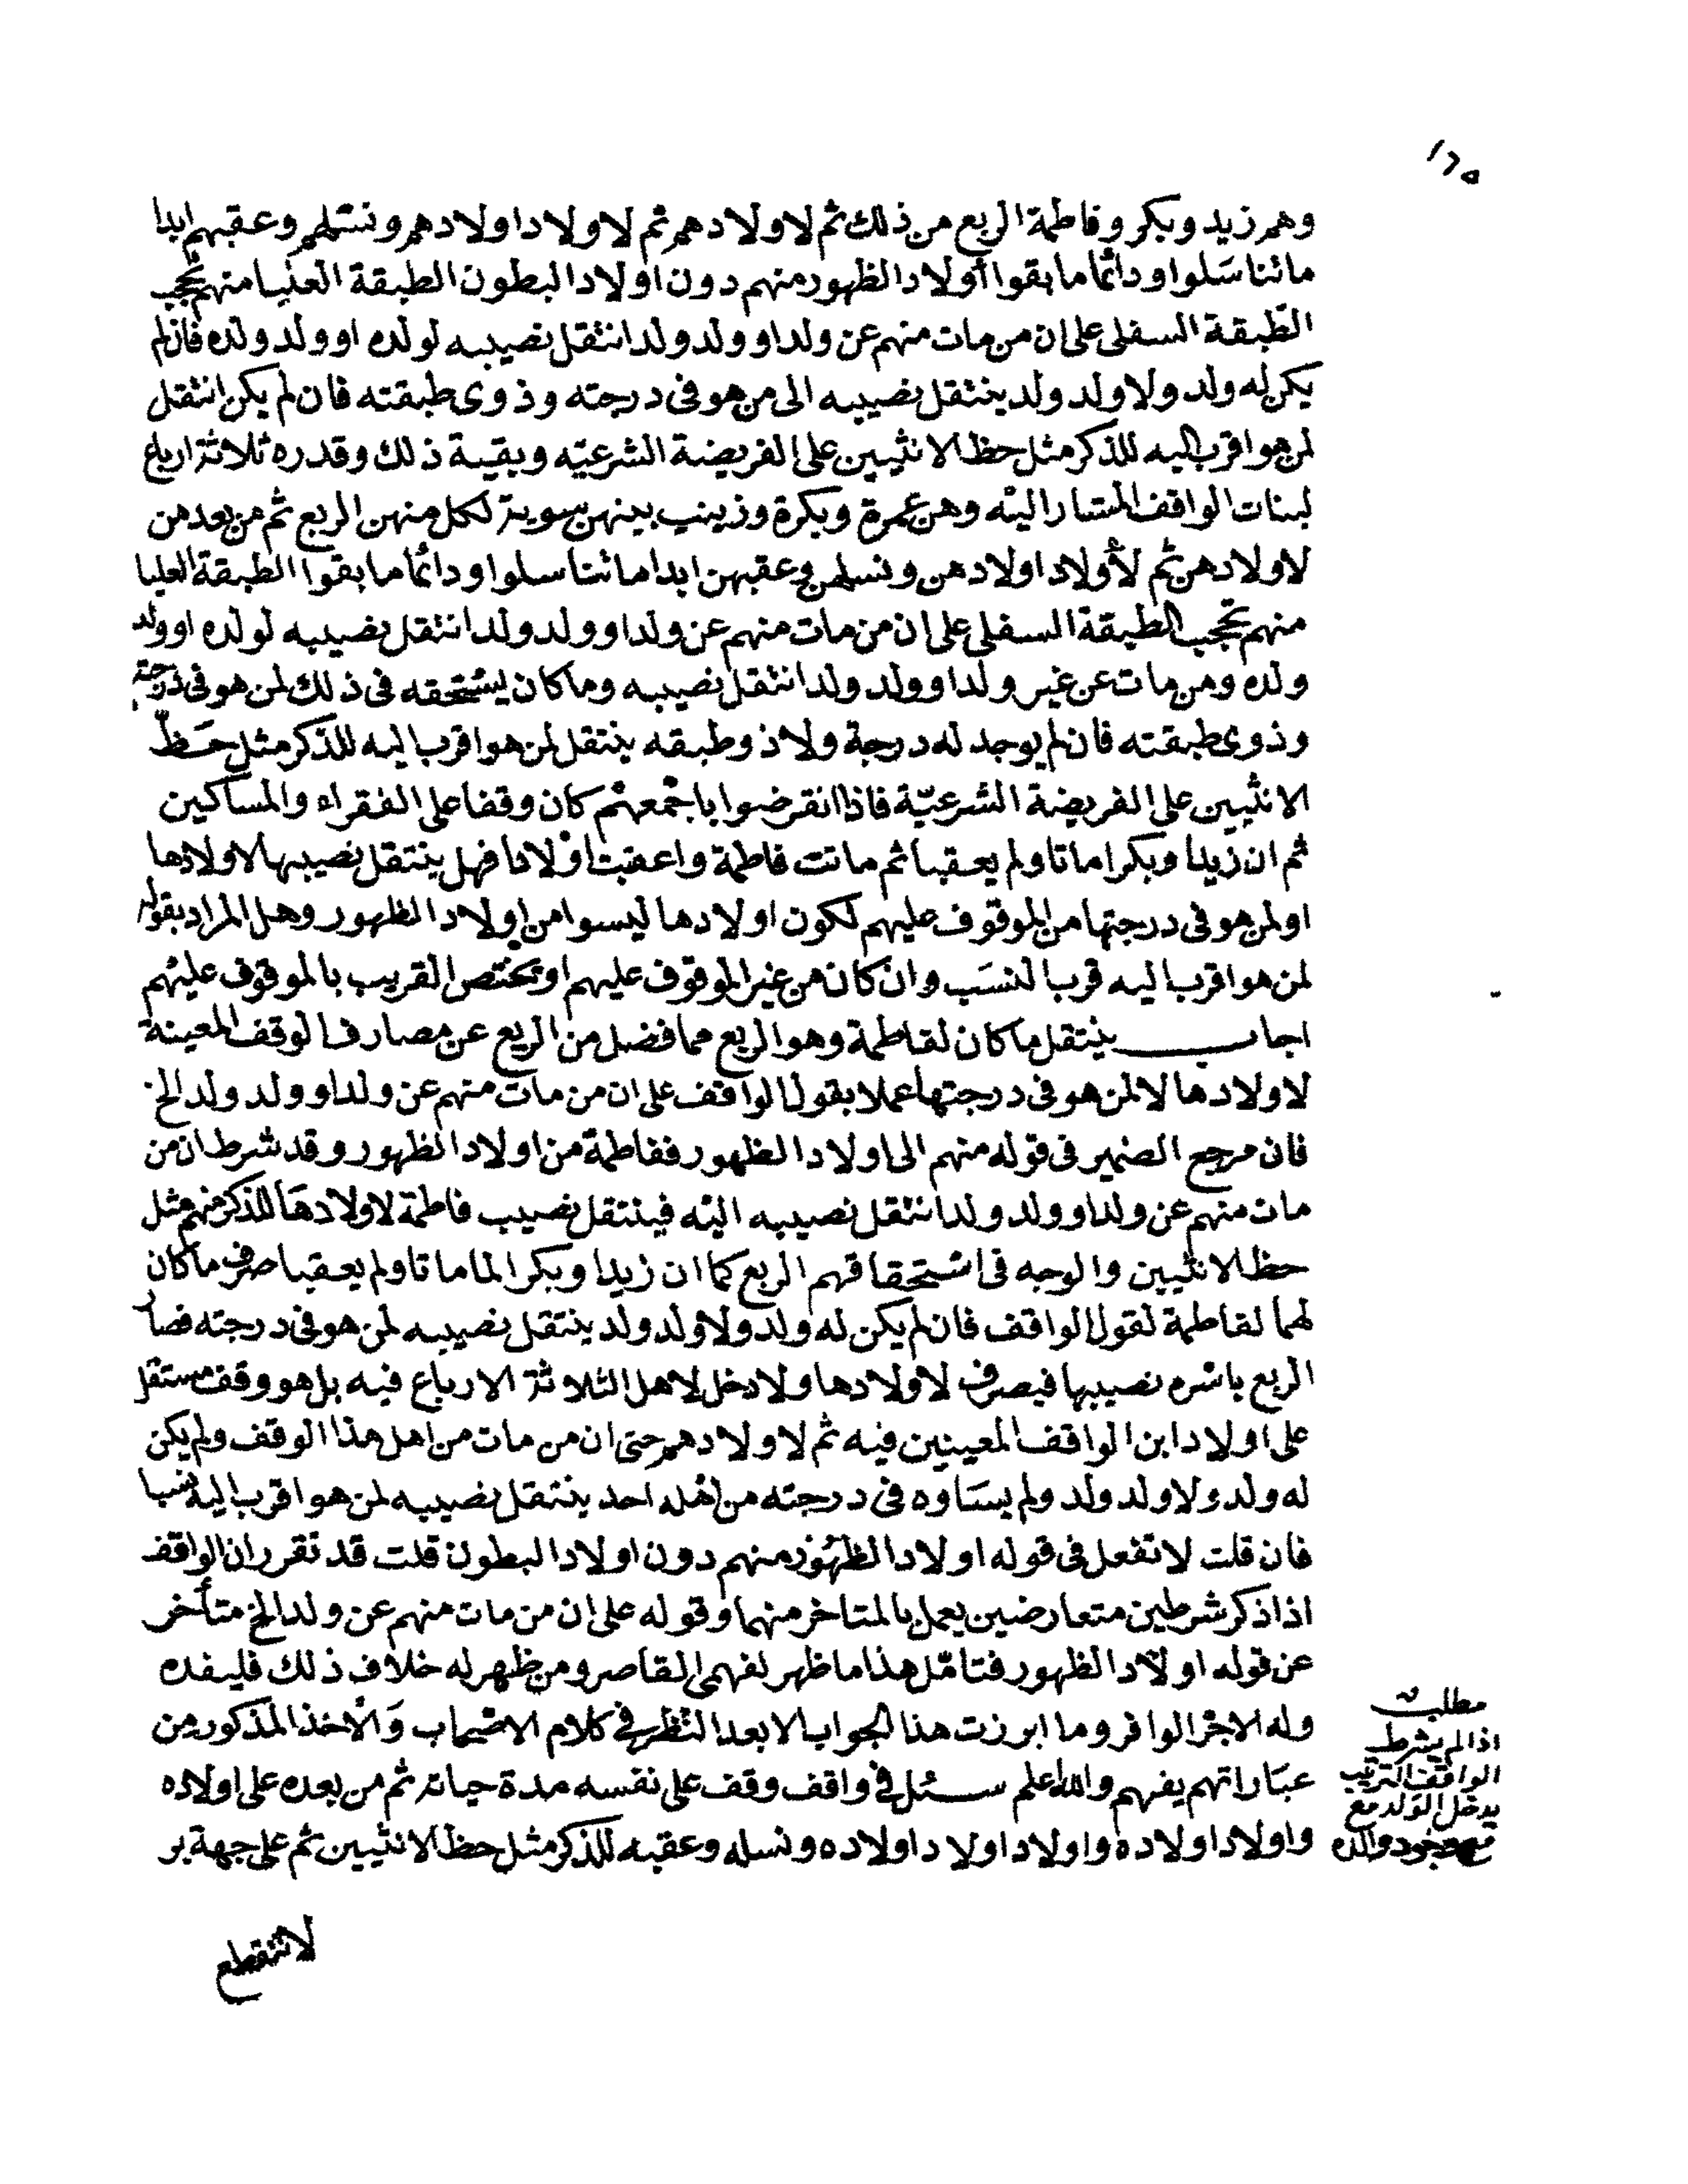 ١٦٥
وهم زيد وبكر وفاطمة الربع من ذلك ثم لاولادهم ثم لاولاد اولادهم ونسلهم وعقبهم ابدا
ماتناسلوا ودائما ما بقوا أولاد الظهور منهم دون اولاد البطون الطبقة العليا منهم تحجب
الطبقة السفلى على ان من مات منهم عن ولد او ولد ولد انتقل نصيبه لولده او ولد ولده فان لم
يكن له ولد ولا ولد ولد ينتقل نصيبه الى من هو فى درجته وذوى طبقته فان لم يكن انتقل
لمن هو اقرب اليه للذكر مثل حظ الانثيين على الفريضة الشرعيّه وبقية ذلك وقدره ثلاثة ارباع
لبنات الواقف المشار اليه وهن عمرة وبكرة وزينب بينهن بسوية لكل منهن الربع ثم من بعدهن
لاولادهن ثم لأولاد اولادهن ونسلهن وعقبهن ابدا ماتناسلوا ودائما ما بقوا الطبقة العليا
منهم تحجب الطبقة السفلى على ان من مات منهم عن ولد او ولد ولد انتقل نصيبه لولده او ولد
ولده ومن مات عن غير ولد او ولد ولد انتقل نصيبه وما كان يستحقه فى ذلك لمن هو فى درجته
وذوى طبقته فان لم يوجد له درجة ولا ذو طبقه ينتقل لمن هو اقرب اليه للذكر مثل حظّ
الانثيين على الفريضة الشرعيّة فاذا انقرضوا باجمعهم كان وقفا على الفقراء والمساكين
ثم ان زيدا وبكرا ماتا ولم يعقبا ثم ماتت فاطمة واعقبت اولادا فهل ينتقل نصيبها لاولادها
او لمن هو فى درجتها من الموقوف عليهم لكون اولادها ليسوا من اولاد الظهور وهل المراد بقوله
لمن هو اقرب اليه قرب النسَب وان كان من غير الموقوف عليهم او يختص القريب بالموقوف عليهم
اجاب ينتقل ما كان لفاطمة وهو الربع مما فضل من الريع عن مصارف الوقف المعينة
لاولادها لا لمن هو فى درجتها عملا بقول الواقف على ان من مات منهم عن ولد او ولد ولد الخ
فان مرجع الضمير فى قوله منهم الى اولاد الظهور ففاطمة من اولاد الظهور وقد شرط ان من
مات منهم عن ولد او ولد ولد انتقل نصيبه اليه فينتقل نصيب فاطمة لاولادهَا للذكر منهم مثل
حظ الانثيين والوجه فى استحقاقهم الربع كما ان زيدا وبكرا لما ماتا ولم يعقبا صرف ما كان
لهما لفاطمة لقول الواقف فان لم يكن له ولد ولا ولد ولد ينتقل نصيبه لمن هو فى درجته فصار
الربع باسره نصيبها فيصرف لاولادها ولا دخل لاهل الثلاثة الارباع فيه بل هو وقف مستقل
على اولاد ابن الواقف المعينين فيه ثم لاولادهم حتى ان من مات من اهل هذا الوقف ولم يكن
له ولد ولا ولد ولد ولم يسَاوه فى درجته من اهله احد ينتقل نصيبه لمن هو اقرب اليه نسبا
فان قلت لا تفعل فى قوله اولاد الظهور منهم دون اولاد البطون قلت قد تقرر ان الواقف
اذا ذكر شرطين متعارضين يعمل بالمتاخر منهما وقوله على ان من مات منهم عن ولد الخ متأخر
عن قوله اولاد الظهور فتامّل هذا ما ظهر لفهمى القاصر ومن ظهر له خلاف ذلك فليفده
وله الاجر الوافر وما ابرزت هذا الجواب الا بعد النظر فى كلام الاصحاب وَالاخذ المذكور من
عبَاراتهم يفهم والله اعلم سئل فى واقف وقف على نفسه مدة حياته ثم من بعده على اولاده
واولاد اولاده واولاد اولاد اولاده ونسله وعقبه للذكر مثل حظ الانثيين ثم على جهة بر
مطلب
اذا لم يشرط
الواقف الترتيب
يدخل الولد مع
وجود والده
لا تنقطع